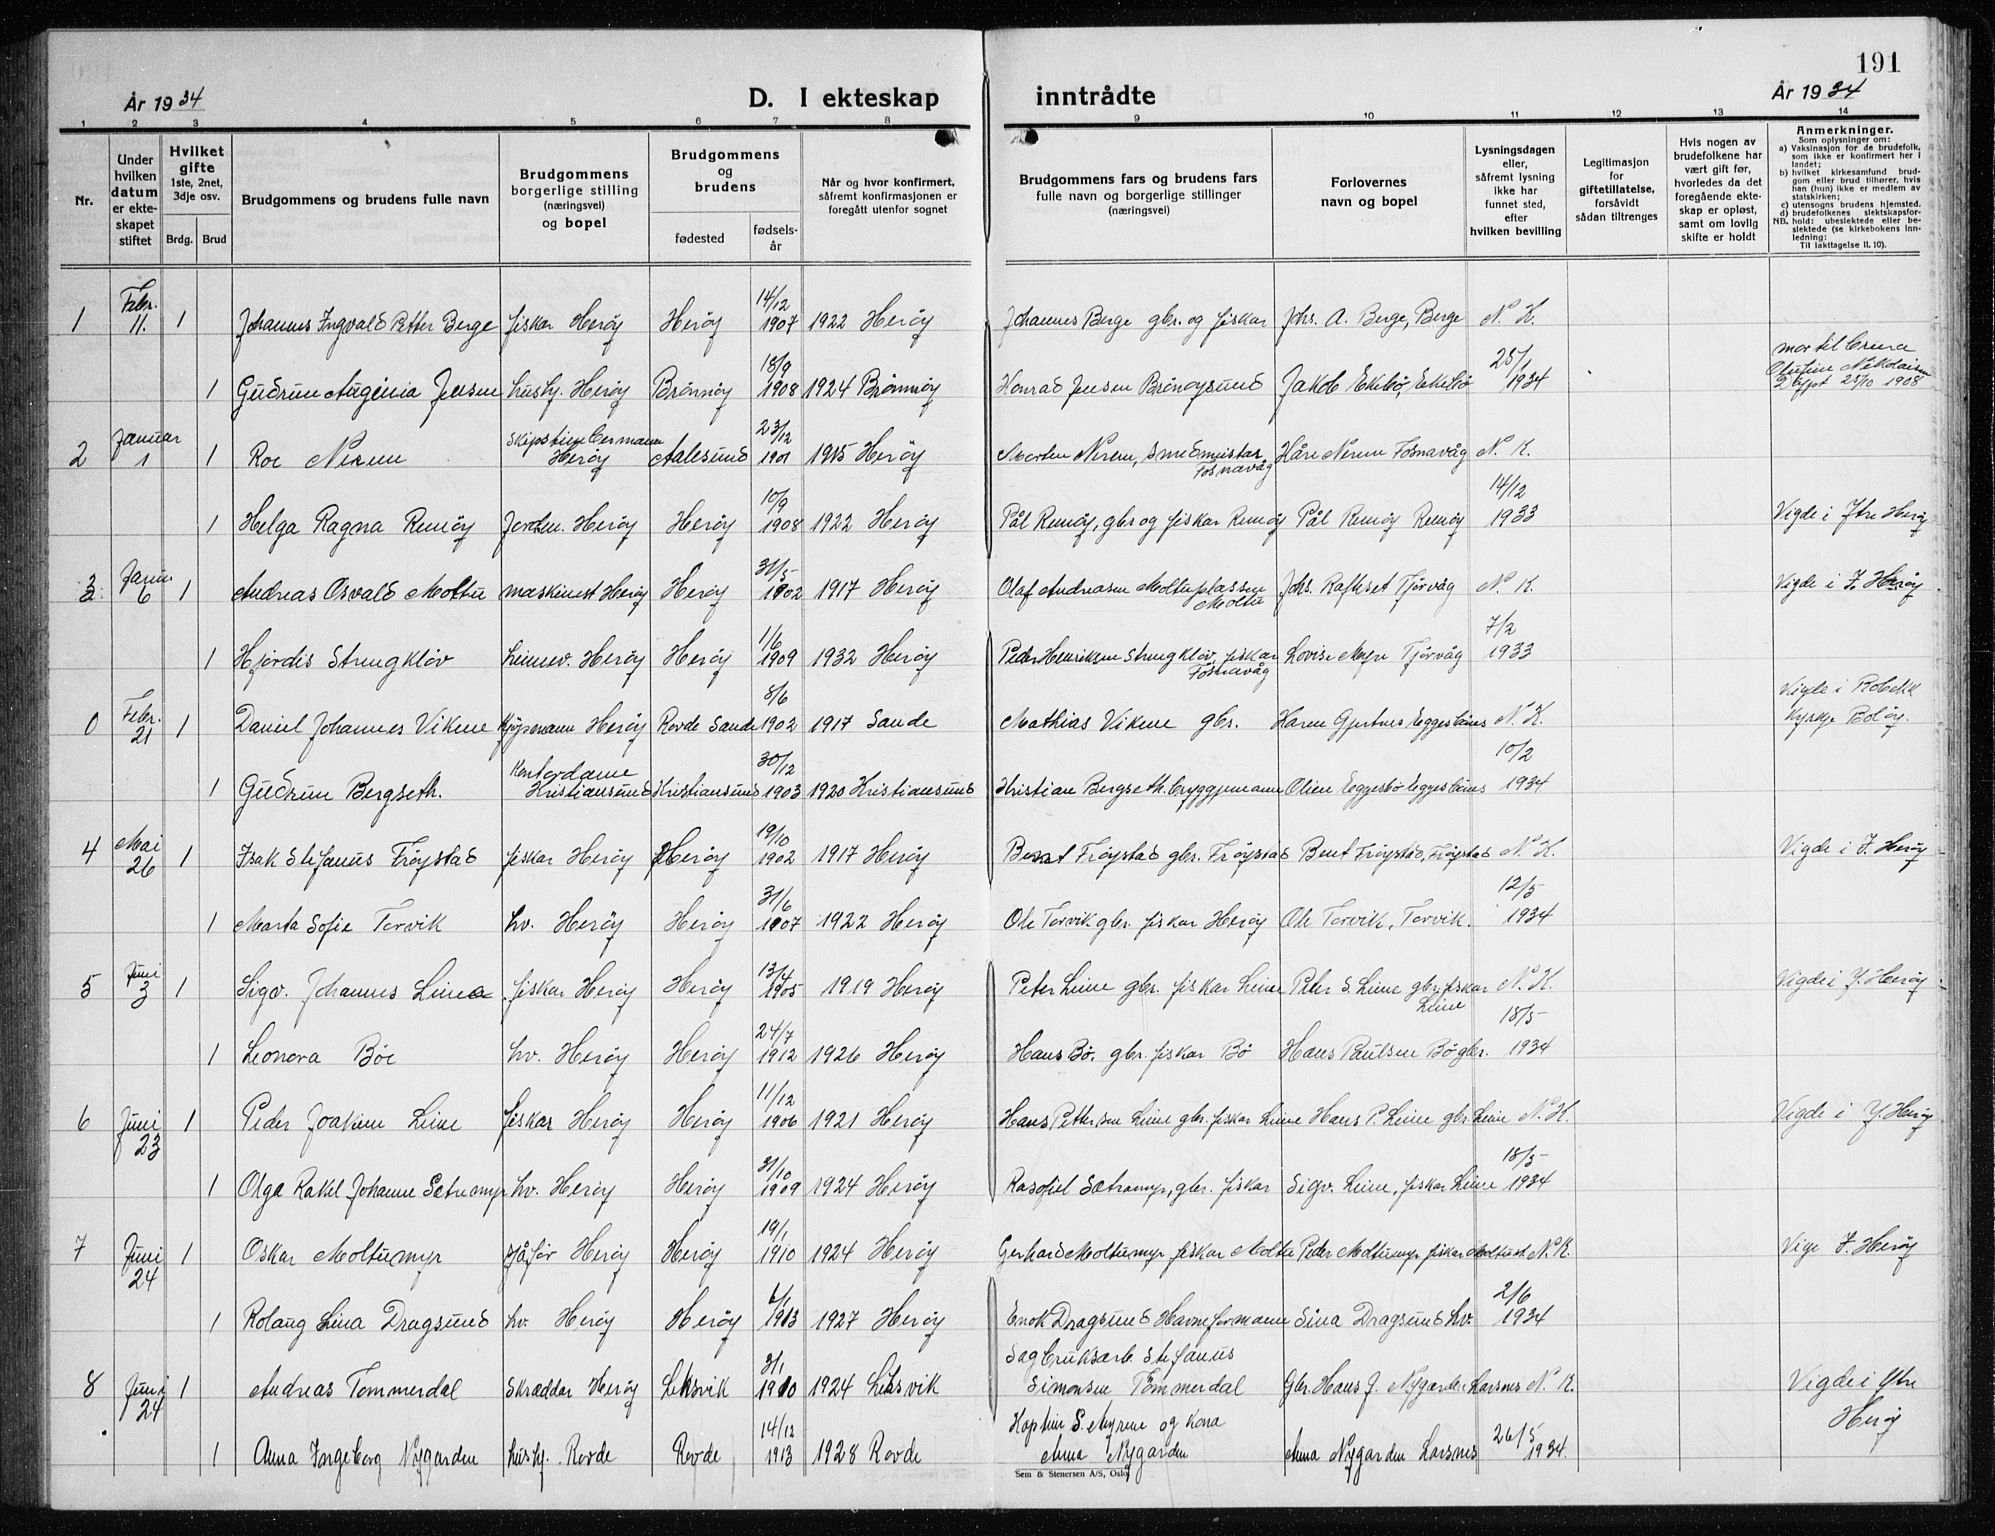 191
År 1934
D. I ekteskap inntrådte
År 1934
1 2 3 4 5 6 7 8 9 10 11 12 13 14
Nr.
Under hvilken datum er ekteskapet stiftet
Hvilket gifte 1ste, 2net, 3dje osv.
Brdg. Brud
Brudgommens og brudens fulle navn
Brudgommens borgerlige stilling (næringsvei) og bopel
Brudgommens og brudens
fødested
fødselsår
Når og hvor konfirmert, såfremt konfirmasjonen er foregått utenfor sognet
Brudgommens fars og brudens fars fulle navn og borgerlige stillinger (næringsvei)
Forlovernes navn og bopel
Lysningsdagen eller, såfremt lysning ikke har funnet sted, efter hvilken bevilling
Legitimasjon for giftetillatelse, forsåvidt sådan tiltrenges
Hvis nogen av brudefolkene har vært gift før, hvorledes da det foregående ekteskap er opløst, samt om lovlig skifte er holdt
Anmerkninger.
Som oplysninger om:
a) Vaksinasjon for de brudefolk, som ikke er konfirmert her i landet;
b) hvilket kirkesamfund brudgom eller brud tilhører, hvis han (hun) ikke er medlem av statskirken;
c) utensogns brudens hjemsted.
d) brudefolkenes slektskapsforhold: ubeslektede eller beslektede (se kirkebokens innledning:
NB. Til iakttagelse II. 10).
1 Febr. 11. 1 Johannes Ingvald Petter Berge fiskar Herøy Herøy 14/12 1907 1922 Herøy Johannes Berge gbr. og fiskar Johs. A. Berge, Berge N. K.
1 Gudrun Augenia Jensen husHj. Herøy Brønnøy 18/9 1908 1924 Brønnøy Konrad Jensen Brønøysund Jakob Eikebø, Eikebø 25/1 1934 mor til brura Nikolaisen Døypt 25/10 1908
2 Januar 1 1 Roe Nerem Herøy Aalesund 23/12 1901 1915 Herøy Morten Nerem, Smedmeistar Fosnavåg Håre Nerem Fosnavåg N. K.
1 Helga Ragna Remøy Jordm. Herøy Herøy 10/9 1908 1922 Herøy Pål Remøy, gbr og fiskar Remøy Pål Remøy Remøy 14/12 1933 Vigde i Ytre Herøy
3 Janu. 6 1 Andreas Osvald Moltu maskinist Herøy Herøy 31/5 1902 1917 Herøy Olaf Andreasen Moltuplassen Moltu Johs. Rafteset Tjørvåg N. K. Vigde i Y. Herøy
1 Hjørdis Strengkløv heimev. Herøy Herøy 1/6 1909 1932 Herøy Peder Henriksen Strengkløv, fiskar Fosnavåg Lovise Myre Tjørvåg 7/2 1933
0 Febr. 21 1 Daniel Johannes Vikene Kjøpmann Herøy Rovde Sande 8/6 1902 1917 Sande Mathias Vikene gbr. Karen Gjertnes Eggesbønes N. K. Vigde i Kyrkje Bolsøy.
1 Gudrun Bergseth. Kontordame Kristiansund Kristiansund 30/12 1903 1920 Kristiansund Kristian Bergseth. bryggjemann Olien Eggesbø Eggesbønes 10/2 1934
4 Mai 26 1 Isak Stefanus Frøystad fiskar Herøy Herøy 19/10 1902 1917 Herøy Bernt Frøystad gbr. Frøystad Bent Frøystad, Frøystad N. K. Vigde i Y. Herøy
1 Marta Sofie Torvik hv. Herøy Herøy 31/6 1907 1922 Herøy Ole Torvik gbr. fiskar Herøy Ole Torvik, Torvik. 12/5 1934
5 Juni 3 1 Sigv. Johannes Leine fiskar Herøy Herøy 13/4 1905 1919 Herøy Peter Leine gbr. fiskar Leine Peter S. Leine gbr. fiskar Leine N. K. Vigde i Y. Herøy
1 Leonora Bøe hv. Herøy Herøy 24/7 1912 1926 Herøy Hans Bø. gbr. fiskar Bø Hans Paulsen Bø gbr. 18/5 1934
6 Juni 23 1 Peder Joakim Leine fiskar Herøy Herøy 11/12 1906 1921 Herøy Hans Pettersen Leine gbr. fiskar Leine Hans P. Leine gbr. Leine N. K. Vigde i Y. Herøy
1 Olga Rakel Johanne Sætremyr hv. Herøy Herøy 31/10 1909 1924 Herøy Rasofiel Sætremyr, gbr. fiskar Sigv. Leine, fiskar Leine 18/5 1934
7 Juni 24 1 Oskar Moltumyr sjåfør Herøy Herøy 19/1 1910 1924 Herøy Gerhard Moltumyr fiskar Moltu Peder Moltumyr fiskar Moltu N. K. Vige Y. Herøy
1 Rolaug Lina Dragsund hv. Herøy Herøy 1913 1927 Herøy Enok Dragsund Havneformann Sina Dragsund hv. 2/6 1934
8 Juni 24 1 Andreas Tømmerdal Skræddar Herøy Leksvik 3/1 1910 1924 Leksvik Sagbruksarb. Stefanus Simonsen Tømmerdal Gbr. Hans J. Nygarden Larsnes N. K. Vigde i Ytre Herøy
1 Anna Ingeborg Nygarden hushj. Rovde Rovde 14/12 1913 1928 Rovde S. Myrene og Kona Anna Nygarden Anna Nygarden Larsnes 26/5 1934.
Sem & Stenersen A/S, Oslo